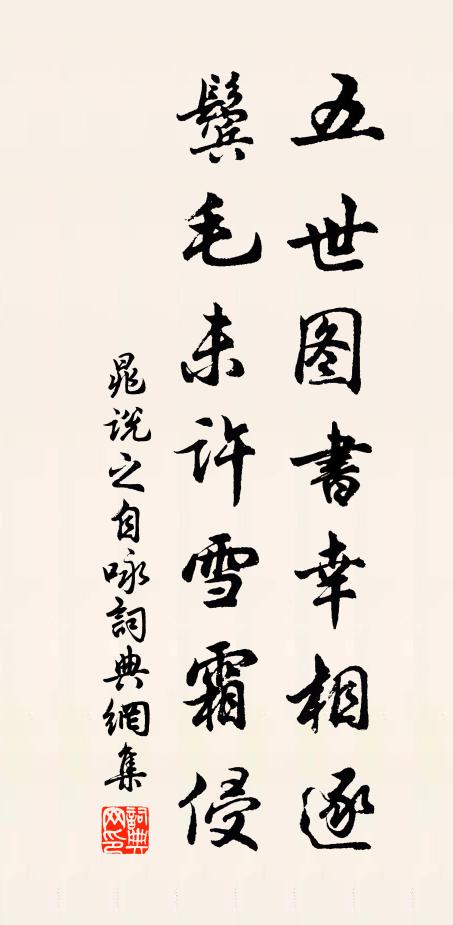 五世图書幸相逐
鬓毛未许雪霜侵
晁说之自咏詞典網集
詞典网印